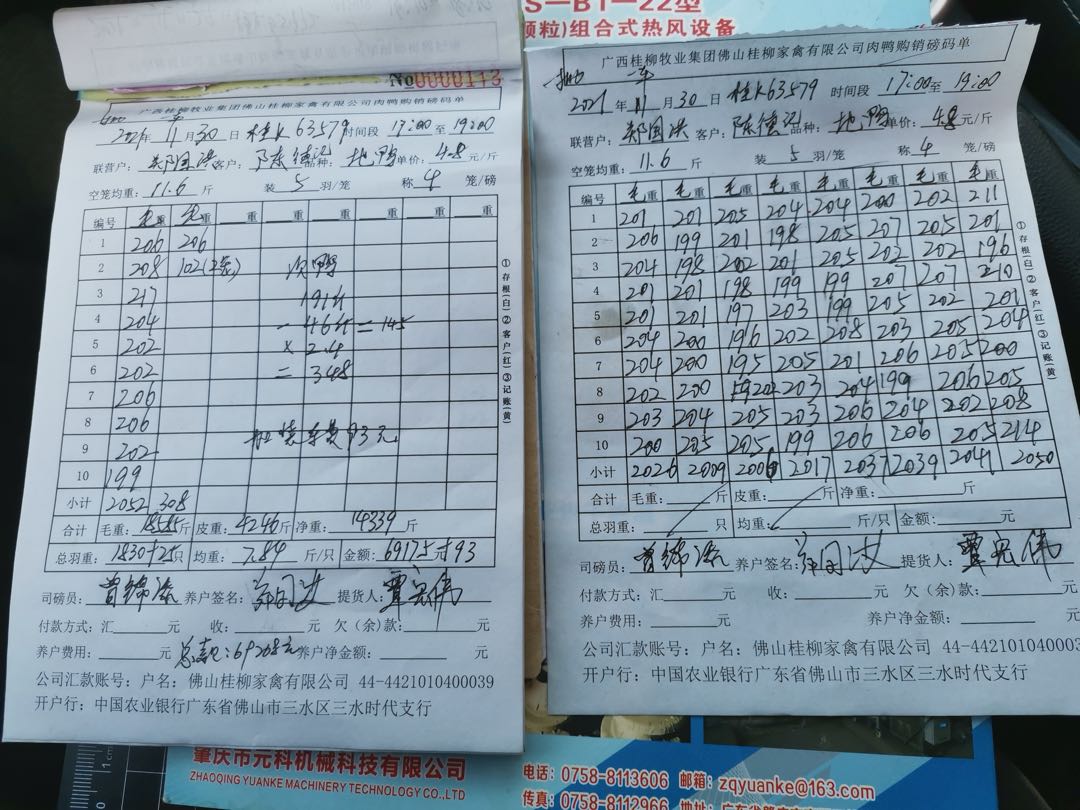 S-BT-22型
颗粒)组合式热风设备
No0000113
广西桂柳牧业集团佛山桂柳家禽有限公司肉鸭购销磅码单
2021年 11月30日 桂K63579 时间段 17:00至19:00
联营户: 郑国洪 客户: 陈德记 品种: 地鸭 单价: 4.8 元/斤
空笼均重: 11.6 斤 装 5 羽/笼 称 4 笼/磅
编号 毛重 毛重 重 重 重 重 重 重
1 206 206
2 208 102(2笼) 次鸭
3 217 191斤
4 204 - 46斤 = 145
5 202 × 2.4
6 202 = 348
7 206
8 206
9 202 烧车费93元
10 199
小计 2052 308
合计 毛重: 18585斤 皮重: 4246斤 净重: 14339 斤
总羽重: 1830+25只 均重: 7.84 斤/只 金额: 69175+93
司磅员: 养户签名: 提货人: 覃宏伟
付款方式: 汇 元 收: 元 欠(余)款: 元
养户费用: 元 总款: 69208元 养户净金额: 元
公司汇款账号: 户名: 佛山桂柳家禽有限公司 44-4421010400039
开户行: 中国农业银行广东省佛山市三水区三水时代支行
①存根(白)②客户(红)③记账(黄)
广西桂柳牧业集团佛山桂柳家禽有限公司肉鸭购销磅码单
2021年 11月30日 桂K63579 时间段 17:00至19:00
联营户: 郑国洪 客户: 陈德记 品种: 地鸭 单价: 4.8 元/斤
空笼均重: 11.6 斤 装 5 羽/笼 称 4 笼/磅
编号 毛重 毛重 毛重 毛重 毛重 毛重 毛重 毛重
1 201 201 205 204 204 200 202 211
2 206 199 201 198 205 207 205 201
3 204 198 202 201 205 202 202 196
4 201 201 198 199 199 207 207 210
5 201 201 197 203 199 205 202 201
6 204 200 196 202 208 203 205 204
7 204 200 195 205 201 206 205 200
8 202 200 202 203 204 199 206 205
9 203 204 205 203 206 204 202 208
10 200 205 205 199 206 206 205 214
小计 2026 2009 2006 2017 2037 2039 2041 2050
合计 毛重: 斤 皮重: 斤 净重: 斤
总羽重: 只 均重: 斤/只 金额: 元
司磅员: 养户签名: 提货人: 覃宏伟
付款方式: 汇 元 收: 元 欠(余)款: 元
养户费用: 元 养户净金额: 元
公司汇款账号: 户名: 佛山桂柳家禽有限公司 44-442101040003
开户行: 中国农业银行广东省佛山市三水区三水时代支行
①存根(白)②客户(红)③记账(黄)
肇庆市元科机械科技有限公司
ZHAOQING YUANKE MACHINERY TECHNOLOGY CO.,LTD
电话: 0758-8113606 邮箱: zqyuanke@163.com
传真: 0758-8112966 地址: